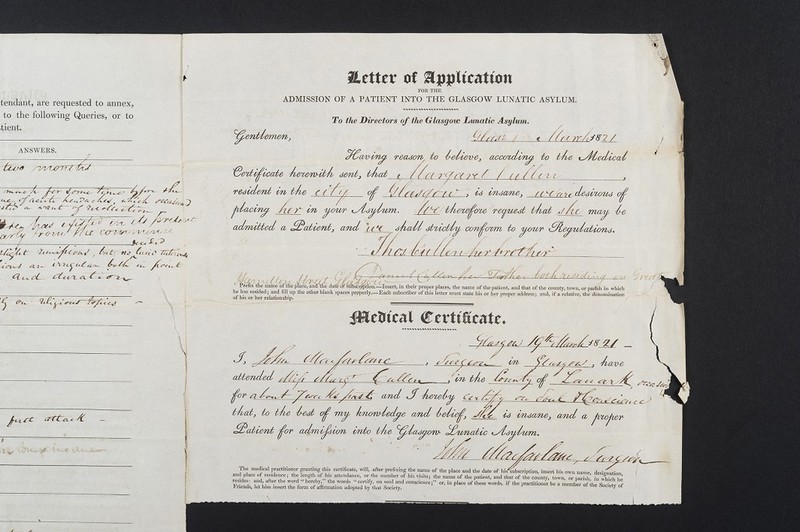 tendant, are requested to annex,
to the following Queries, or to
tient.
ANSWERS.
two months
much for some time before she
of acute headaches, which occasioned
a want of recollection
has existed in its present
from the commence
slight remissions, but no lucid intervals
an irregular both in point
and duration
on religious topics –
first attack –
Letter of Application
FOR THE
ADMISSION OF A PATIENT INTO THE GLASGOW LUNATIC ASYLUM.
To the Directors of the Glasgow Lunatic Asylum.
Gentlemen, March 1821
Having reason to believe, according to the Medical
Certificate herewith sent, that Margaret Cullen,
resident in the city of Glasgow, is insane, we are desirous of
placing her in your Asylum. We therefore request that she may be
admitted a Patient, and we shall strictly conform to your Regulations.
Thos Cullen her brother
Hamilton Street Cullen her Father both residing in
Prefix the name of the place, and the date of subscription.—Insert, in their proper places, the name of the patient, and that of the county, town, or parish in which
he has resided; and fill up the other blank spaces properly.—Each subscriber of this letter must state his or her proper address; and, if a relative, the denomination
of his or her relationship.
Medical Certificate.
Glasgow 19th March 1821 –
I, John Macfarlane, Surgeon in Glasgow, have
attended Miss Margt Cullen, in the County of Lanark
for about 7 weeks past and I hereby certify on Soul & Conscience
that, to the best of my knowledge and belief, She is insane, and a proper
Patient for admission into the Glasgow Lunatic Asylum.
John Macfarlane, Surgeon
The medical practitioner granting this certificate, will, after prefixing the name of the place and the date of his subscription, insert his own name, designation,
and place of residence; the length of his attendance, or the number of his visits; the name of the patient, and that of the county, town, or parish, in which he
resides and, after the word "hereby," the words "certify, on soul and conscience;" or, in place of these words, if the practitioner be a member of the Society of
Friends, let him insert the form of affirmation adopted by that Society.